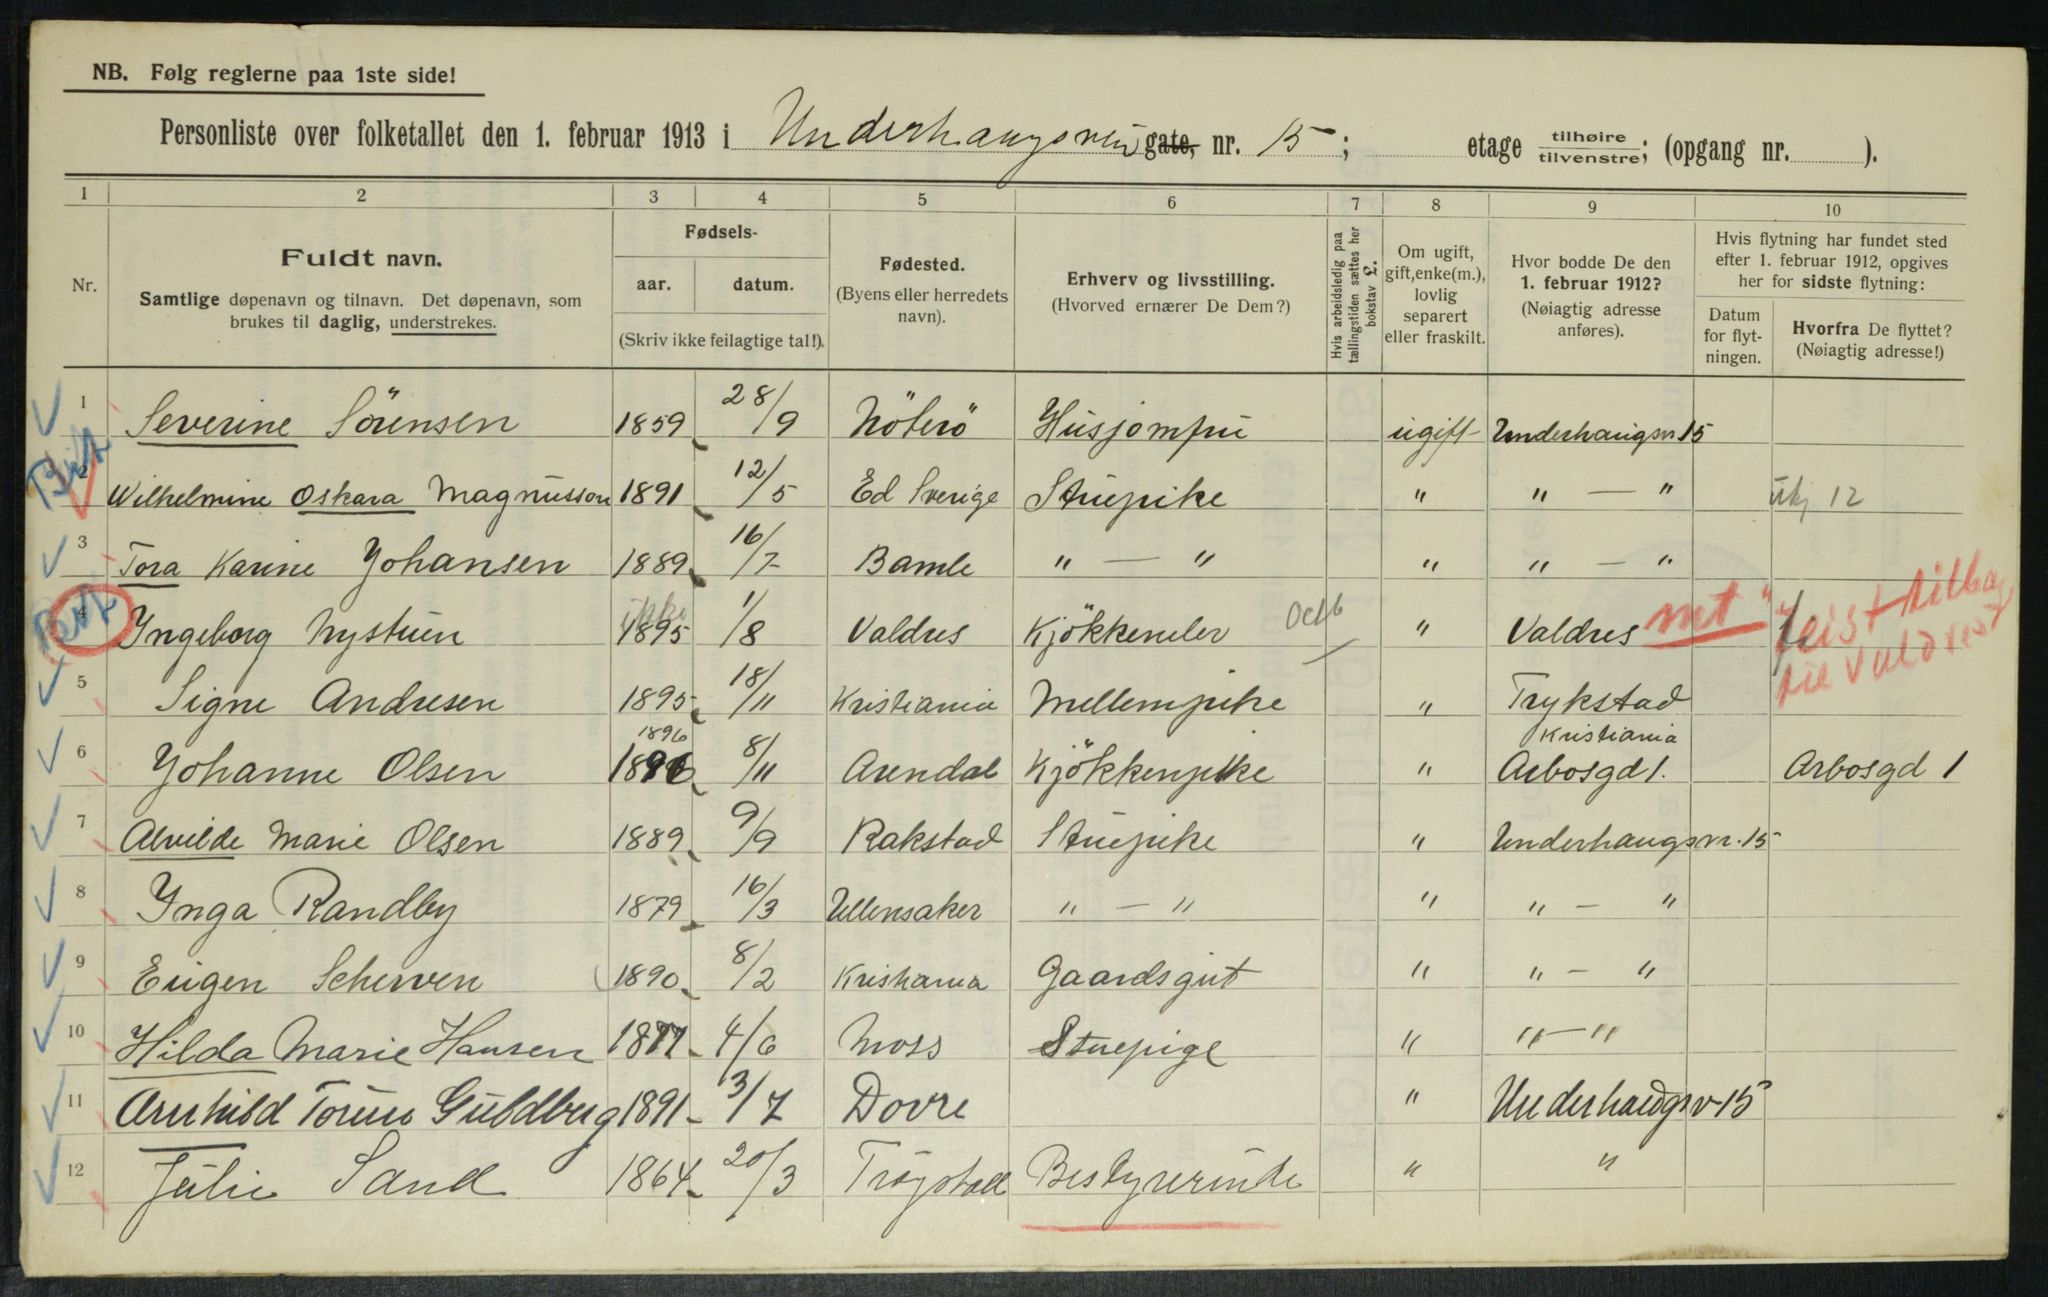 NB. Følg reglerne paa 1ste side!
Personliste over folketallet den 1. februar 1913 i Underhaugsvei gate, nr. 15; etage tilhøire tilvenstre; (opgang nr. ).
1 2 3 4 5 6 7 8 9 10
Nr.
Fuldt navn.
Samtlige døpenavn og tilnavn. Det døpenavn, som
brukes til daglig, understrekes.
Fødsels-
aar. datum.
(Skriv ikke feilagtige tal!).
Fødested.
(Byens eller herredets
navn).
Erhverv og livsstilling.
(Hvorved ernærer De Dem?)
Hvis arbeidsledig paa
tællingstiden sættes her
bokstav £.
Om ugift,
gift, enke(m.),
lovlig
separert
eller fraskilt.
Hvor bodde De den
1. februar 1912?
(Nøiagtig adresse
anføres).
Hvis flytning har fundet sted
efter 1. februar 1912, opgives
her for sidste flytning:
Datum
for flyt-
ningen.
Hvorfra De flyttet?
(Nøiagtig adresse!)
1 Severine Sörensen 1859 28/9 Nöterö Husjomfru ugift Underhaugsv 15
2 Wilhelmine Oskara Magnusson 1891 12/5 Ed Sverige Stuepike " " — " 12
3 Tora Karine Johansen 1889 16/7 Bamle " — " " " — "
4 Ingeborg Nystuen ikke 1895 1/8 Valdres Kjökkenelev Octb " Valdres reist tilbage
til Valdrest
5 Signe Andresen 1895 18/11 Kristiania Mellempike " Trykstad
6 Johanne Olsen 1896 1896 8/11 Arendal Kjökkenpike " Kristiania Arbosgd 1. Arbosgd 1
7 Alvilde Marie Olsen 1889 9/9 Rakstad Stuepike " Underhaugsv. 15
8 Inga Randby 1879 16/3 Ullensaker " — " " " — "
9 Eugen Scherven 1890 8/2 Kristiania Gaardsgut " " — "
10 Hilda Marie Hansen 1877 4/6 Moss Stuepige " " — "
11 Arnhild Torun Guldberg 1891 3/7 Dovre " Underhaugsv 15
12 Julie Sand 1864 20/3 Trøgstad Bestyrerinde " "